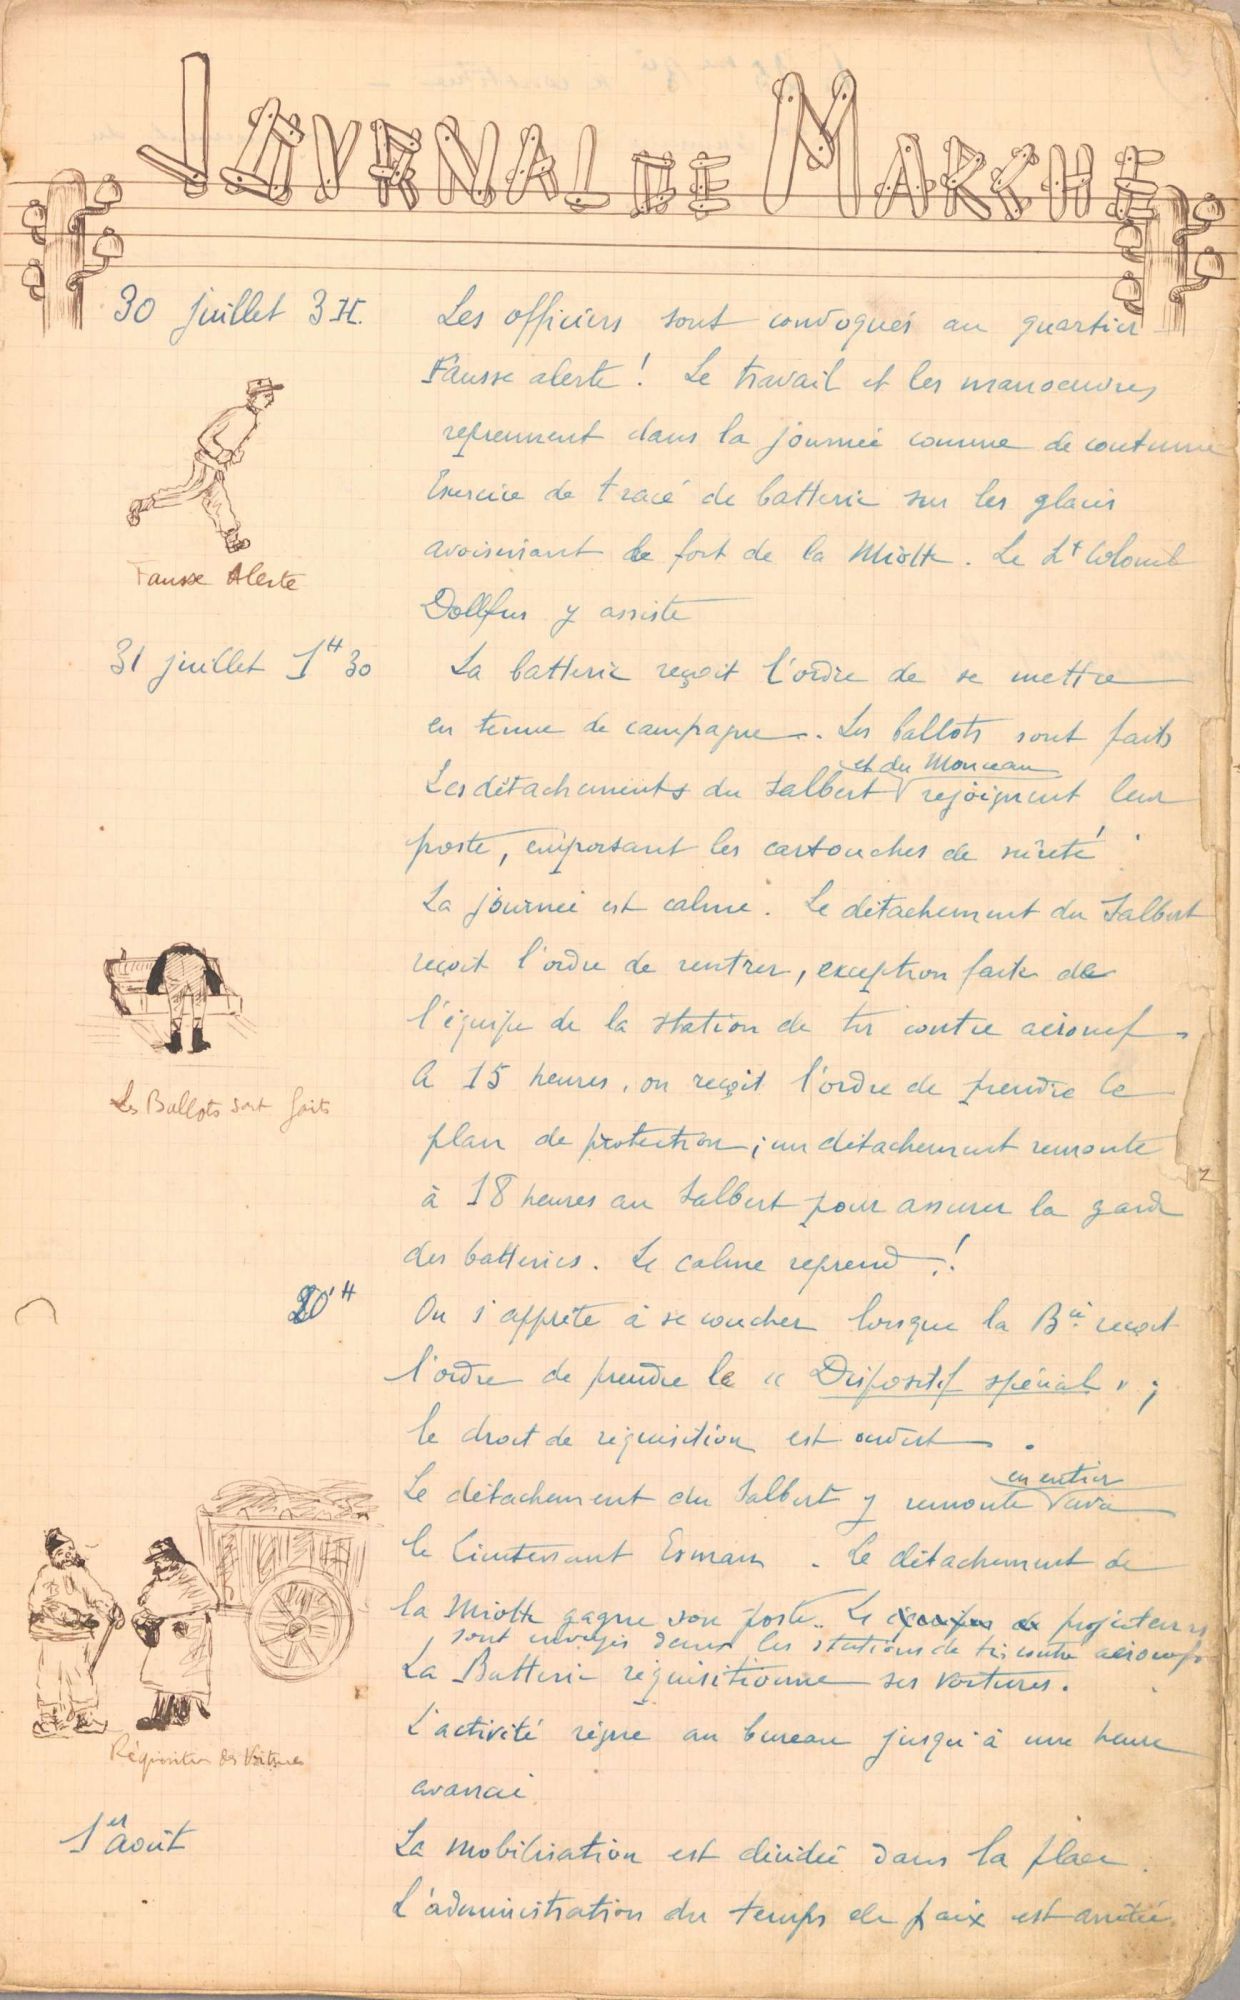 JOVRNAL DE MARCHE
30 juillet 3H.
Les officiers sont convoqués au quartier
Fausse alerte ! Le travail et les manoeuvres
reprennent dans la journée comme de coutume
Exercice de tracé de batterie sur les glacis
avoisinant le fort de la Miotte. Le Lt Colonel
Dollfus y assiste
Fausse Alerte
31 juillet 1H30
La batterie reçoit l'ordre de se mettre
en tenue de campagne. Les ballots sont faits
et du Monceau
Les détachements du Salbert rejoignent leur
poste, emportant les cartouches de sûreté !
La journée est calme. Le détachement du Salbert
reçoit l'ordre de rentrer, exception faite de
l'équipe de la station de tir contre aéronef.
A 15 heures, on reçoit l'ordre de prendre le
plan de protection ; un détachement remonte
à 18 heures au Salbert pour assurer la garde
des batteries. Le calme reprend !
Les Ballots sont faits
20H
On s'apprête à se coucher lorsque la Bie reçoit
l'ordre de prendre le "Dispositif spécial" ;
le droit de réquisition est ouvert.
en entier
Le détachement du Salbert y remonte avec
le Lieutenant Esman. Le détachement de
la Miotte gagne son poste. Le projecteurs
sont envoyés dans les stations de tir contre aéronefs
La Batterie réquisitionne ses voitures.
L'activité règne au bureau jusqu'à une heure
avancée
Réquisition des Voitures
1er août
La mobilisation est décidée dans la place.
L'administration du temps de paix est arrêtée